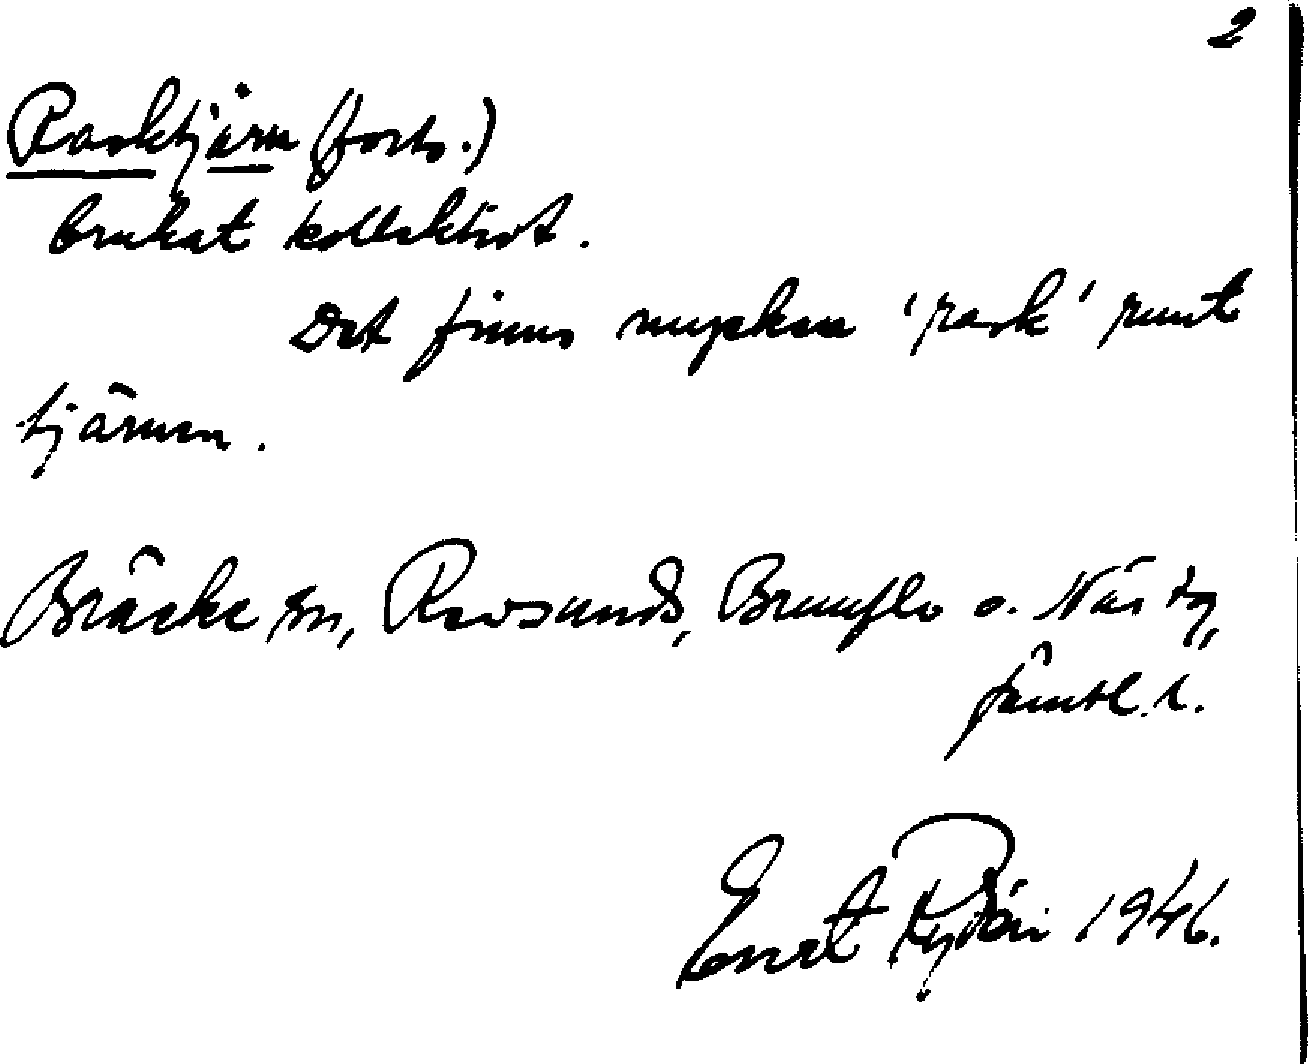 2
Rasktjärn (forts.)
brukat kollektivt.
Det finns mycken 'rask' runt
tjärnen.
Bräcke sn, Revsunds, Brunflo o. Näs tg,
Jämtl. l.
Ernst Rydén 1946.